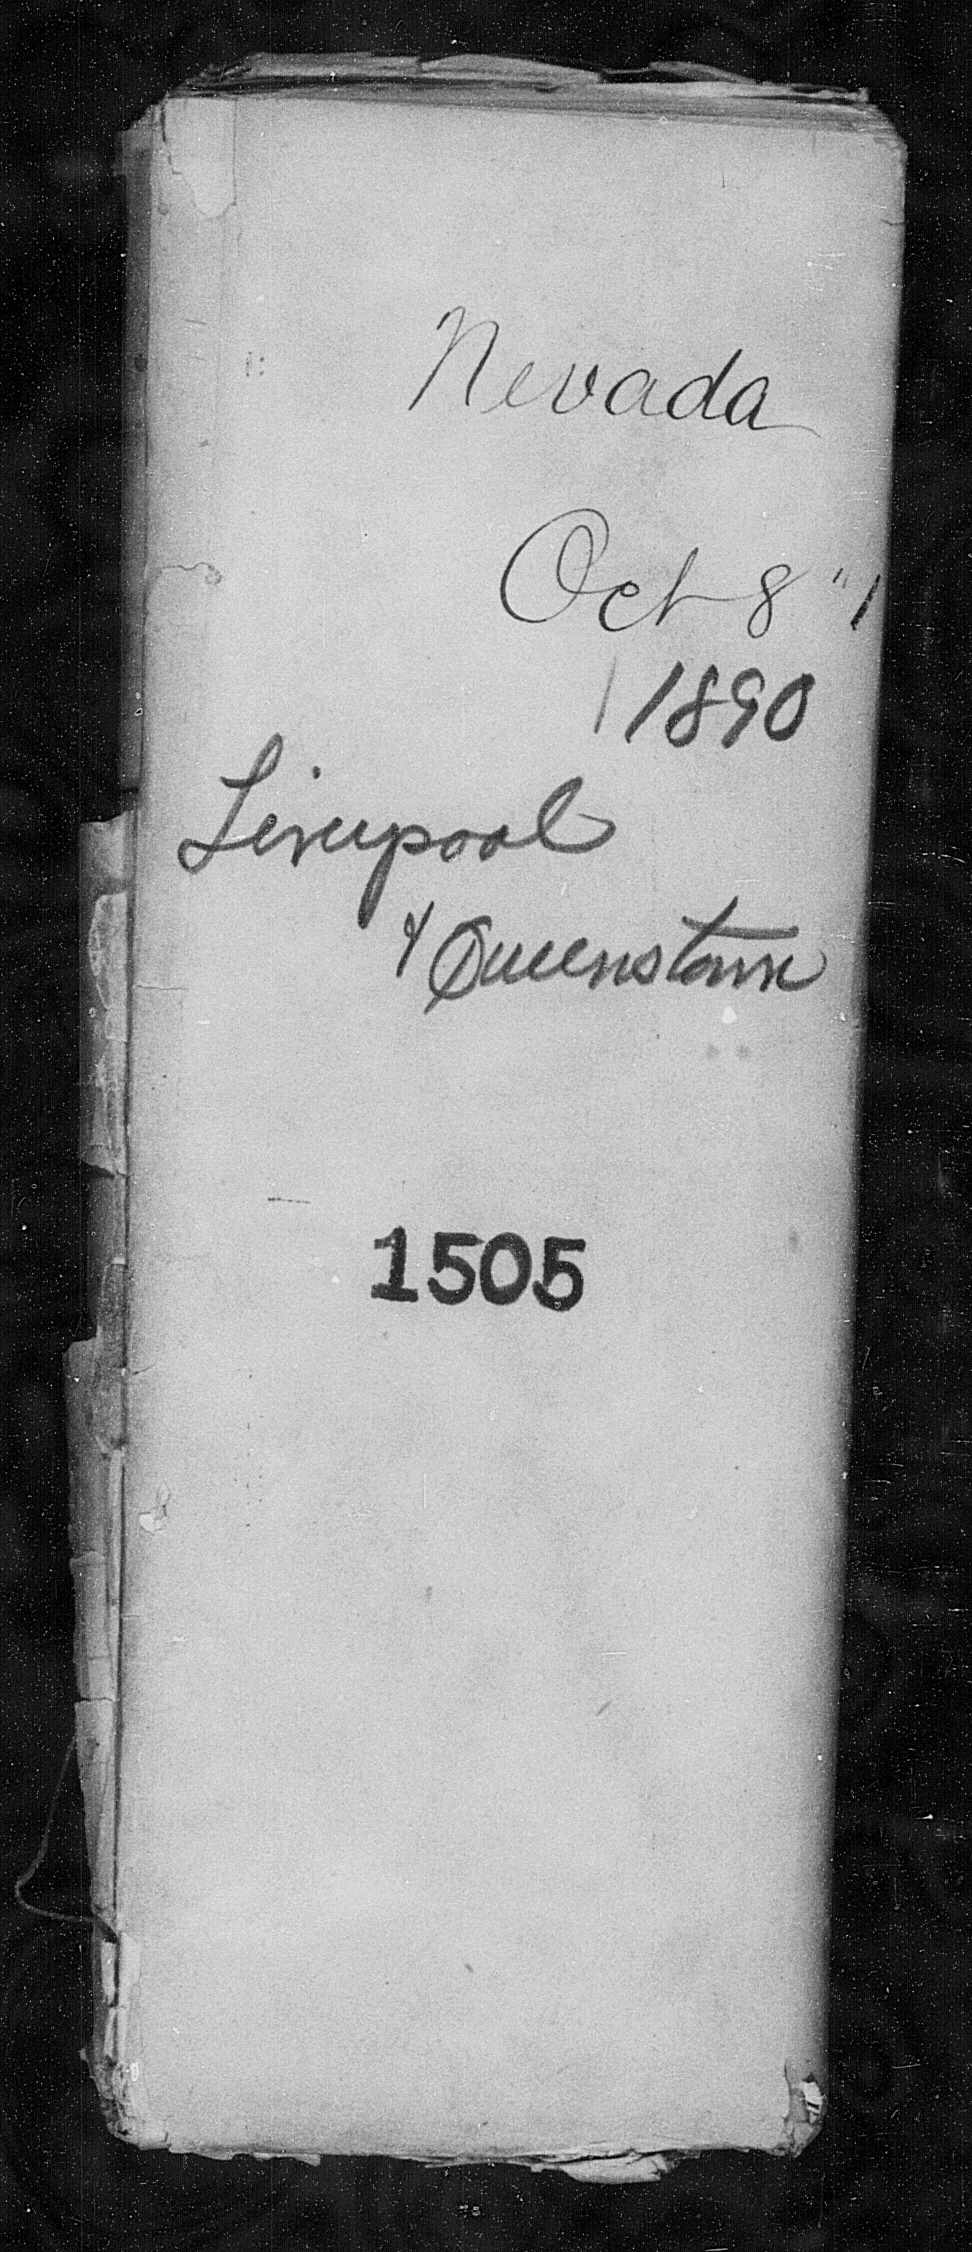 Nevada
Oct 8 "
1890
Liverpool
& Queenstown
1505